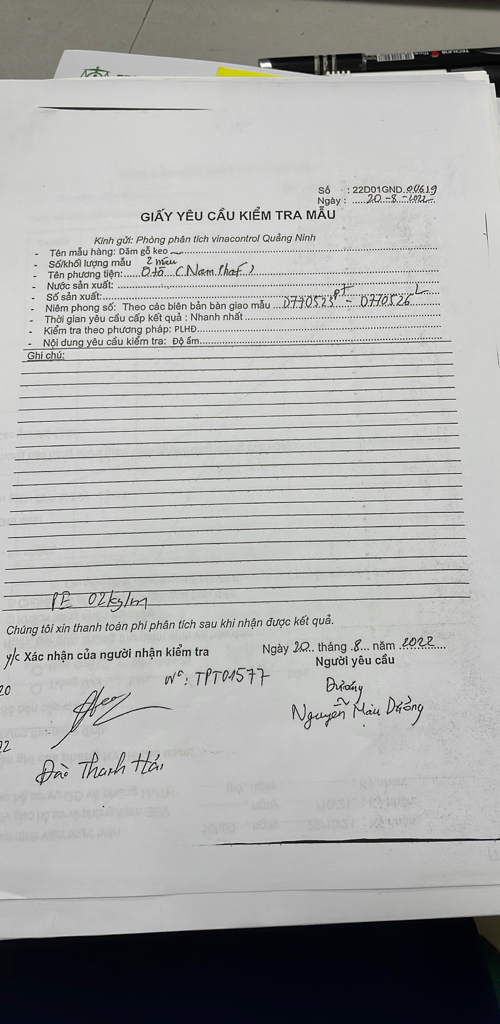 Số : 22D01GND.04619
Ngày : 20-8-2022
GIẤY YÊU CẦU KIỂM TRA MẪU
Kính gửi: Phòng phân tích vinacontrol Quảng Ninh
- Tên mẫu hàng: Dăm gỗ keo
- Số/khối lượng mẫu 2 mẫu
- Tên phương tiện: Ô tô (Nam Phát)
- Nước sản xuất:
- Số sản xuất:
- Niêm phong số: Theo các biên bản bàn giao mẫu 0770525 PT - 0770526 L
- Thời gian yêu cầu cấp kết quả : Nhanh nhất
- Kiểm tra theo phương pháp: PLHĐ
- Nội dung yêu cầu kiểm tra: Độ ẩm
Ghi chú:
PE 02kg/m
Chúng tôi xin thanh toán phí phân tích sau khi nhận được kết quả.
Ngày 20 tháng 8 năm 2022
y/c Xác nhận của người nhận kiểm tra
Người yêu cầu
20
Nº: TPT01577
Dưỡng
Nguyễn Mậu Dưỡng
22
Đào Thanh Hải